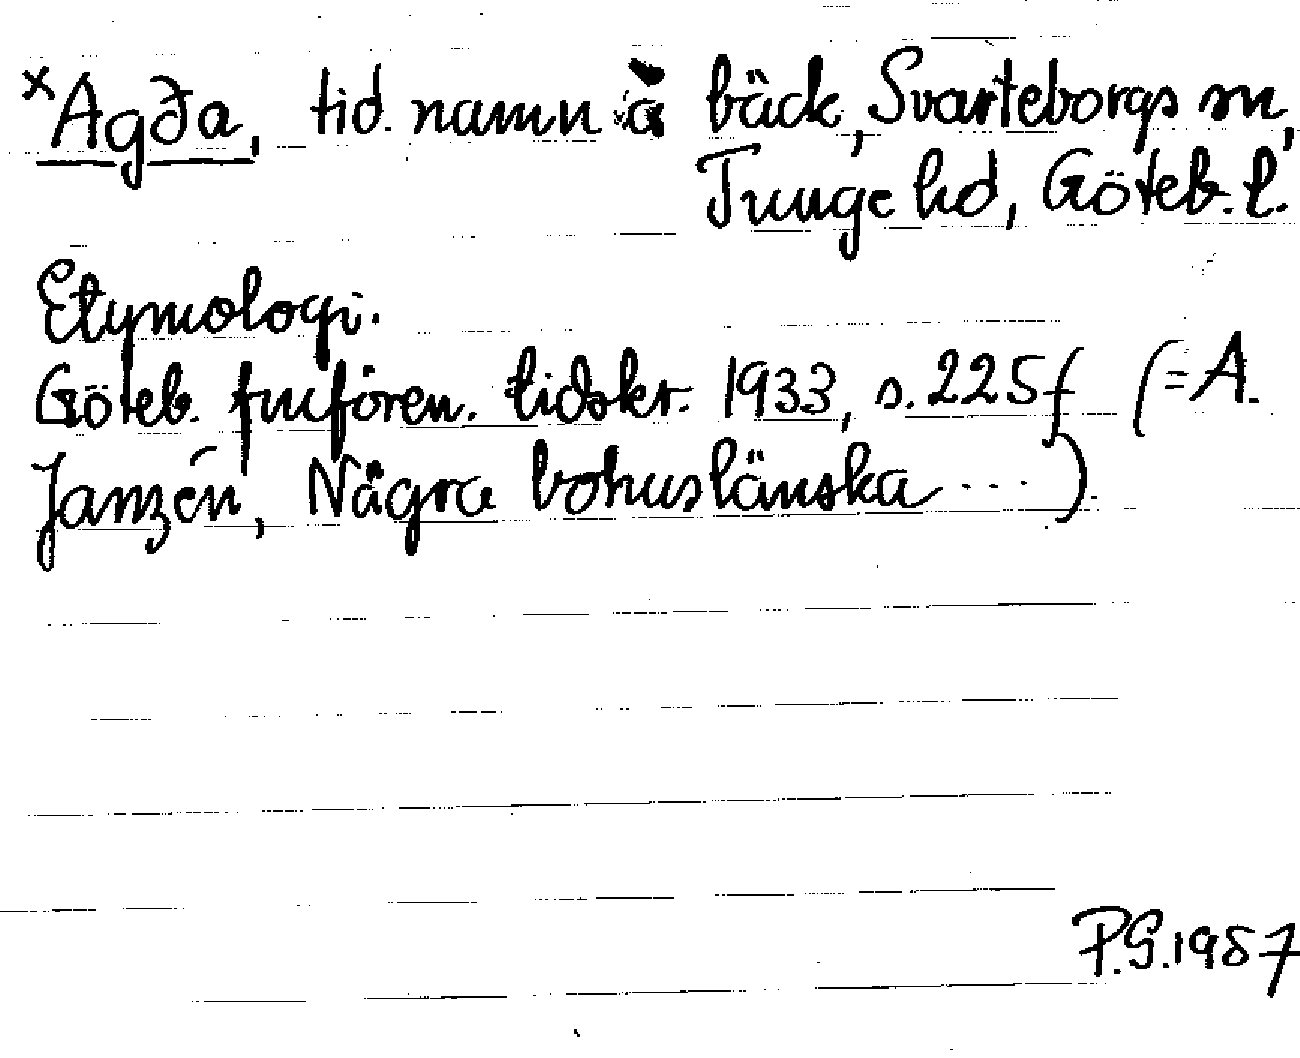 ×Agða, tid. namn å bäck, Svarteborgs sn,
Tunge hd, Göteb. l.
Etymologi.
Göteb. fmfören. tidskr. 1933, s. 225 f (= A.
Janzén, Några bohuslänska ...).
P.G. 1957